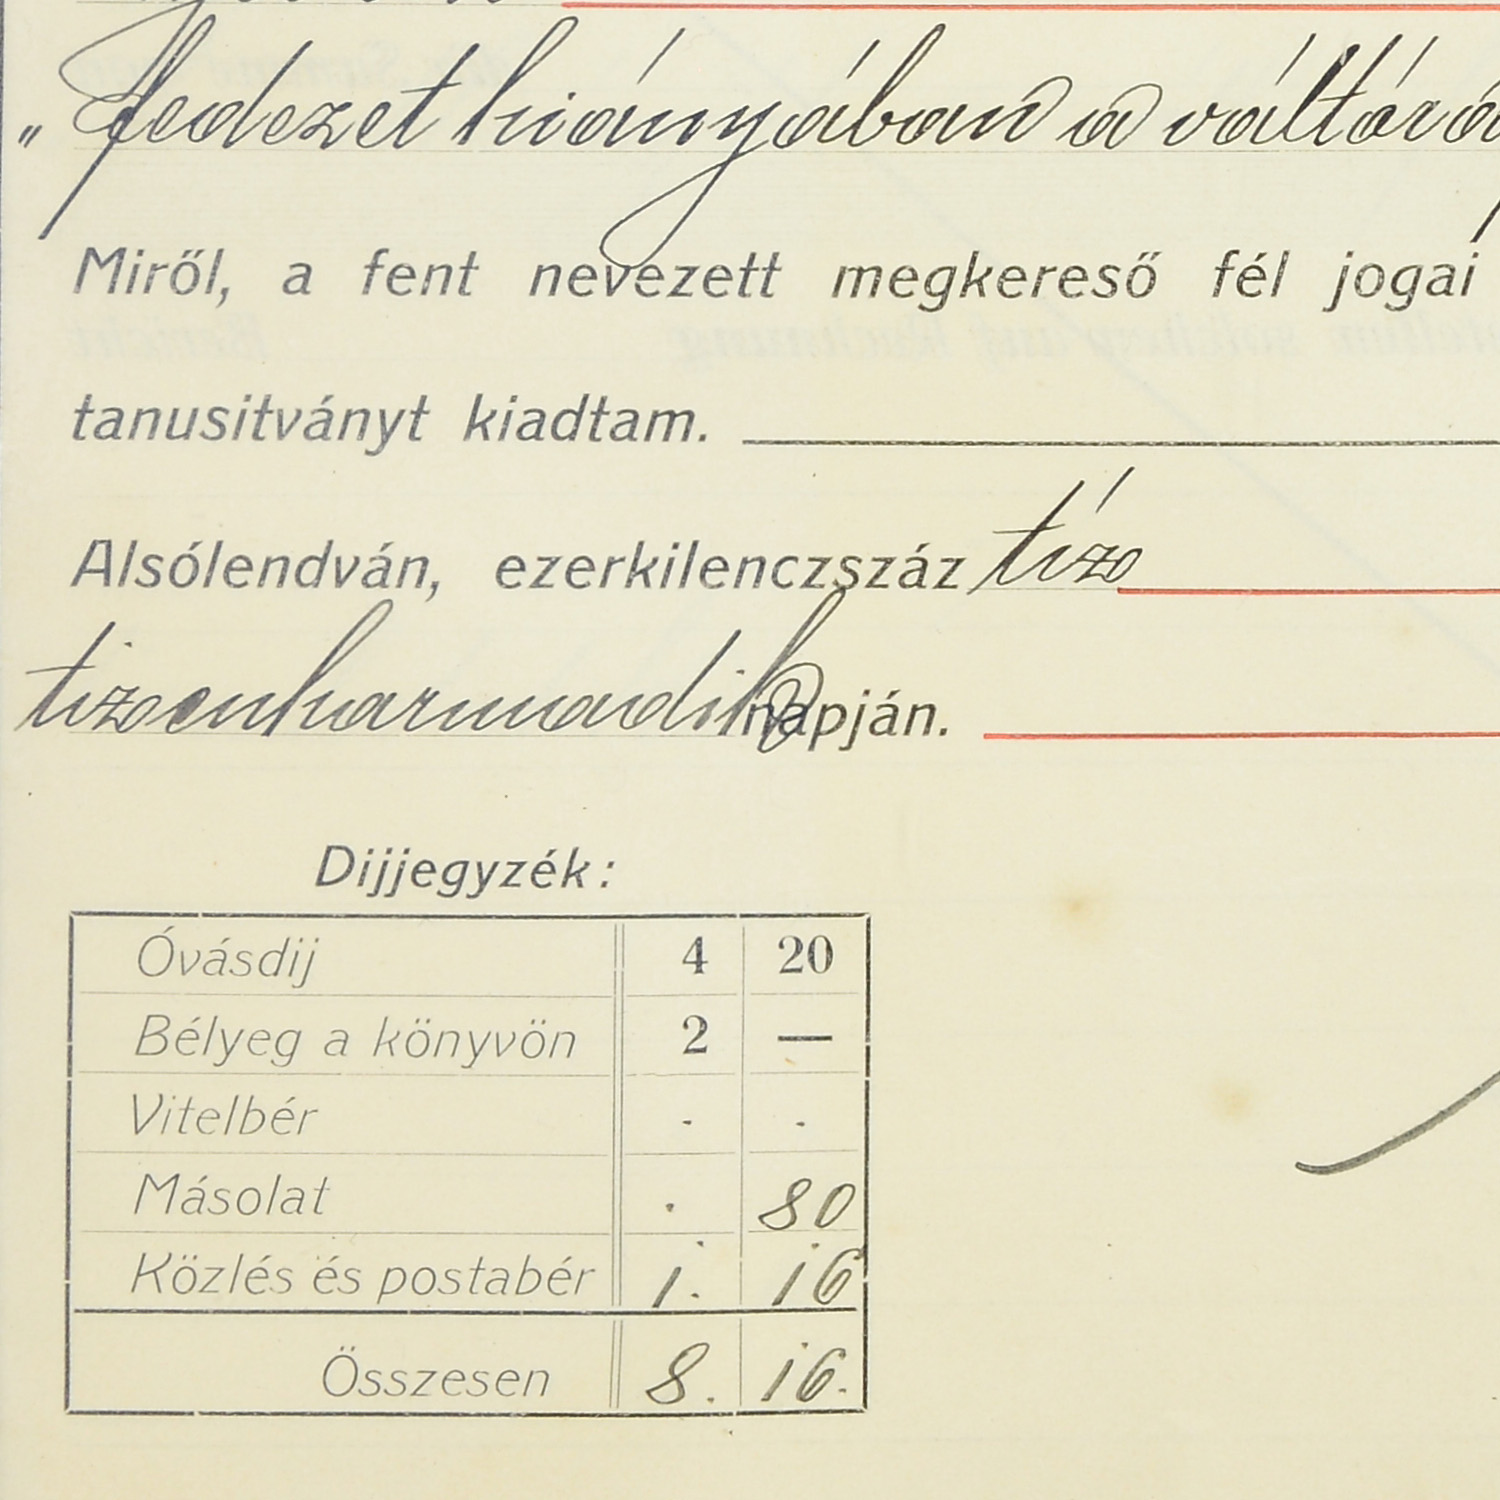 „fedezet hiányában a váltóra
Miről, a fent nevezett megkereső fél jogai
tanusitványt kiadtam.
Alsólendván, ezerkilenczszáz tíz
tizenharmadik napján.
Dijjegyzék:
Óvásdij 4 20
Bélyeg a könyvön 2 —
Vitelbér - -
Másolat . 80
Közlés és postabér 1. 16
Összesen 8. 16.